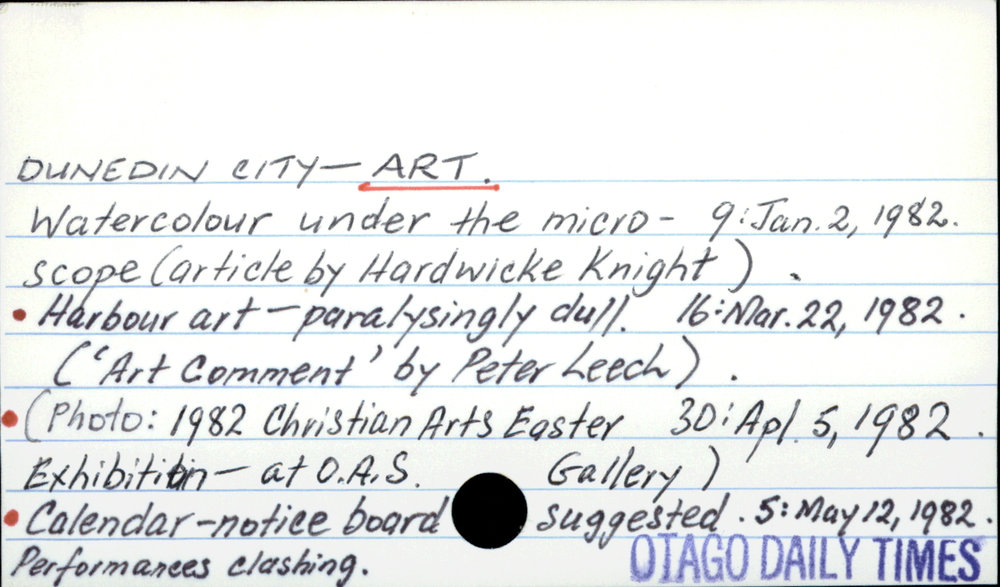 DUNEDIN CITY — ART.
Watercolour under the micro- 9: Jan. 2, 1982.
scope (article by Hardwicke Knight).
• Harbour art — paralysingly dull. 16: Mar. 22, 1982.
('Art Comment' by Peter Leech).
• (Photo: 1982 Christian Arts Easter 30: Apl. 5, 1982.
Exhibition — at O.A.S. Gallery)
• Calendar-notice board suggested. 5: May 12, 1982.
Performances clashing.
OTAGO DAILY TIMES